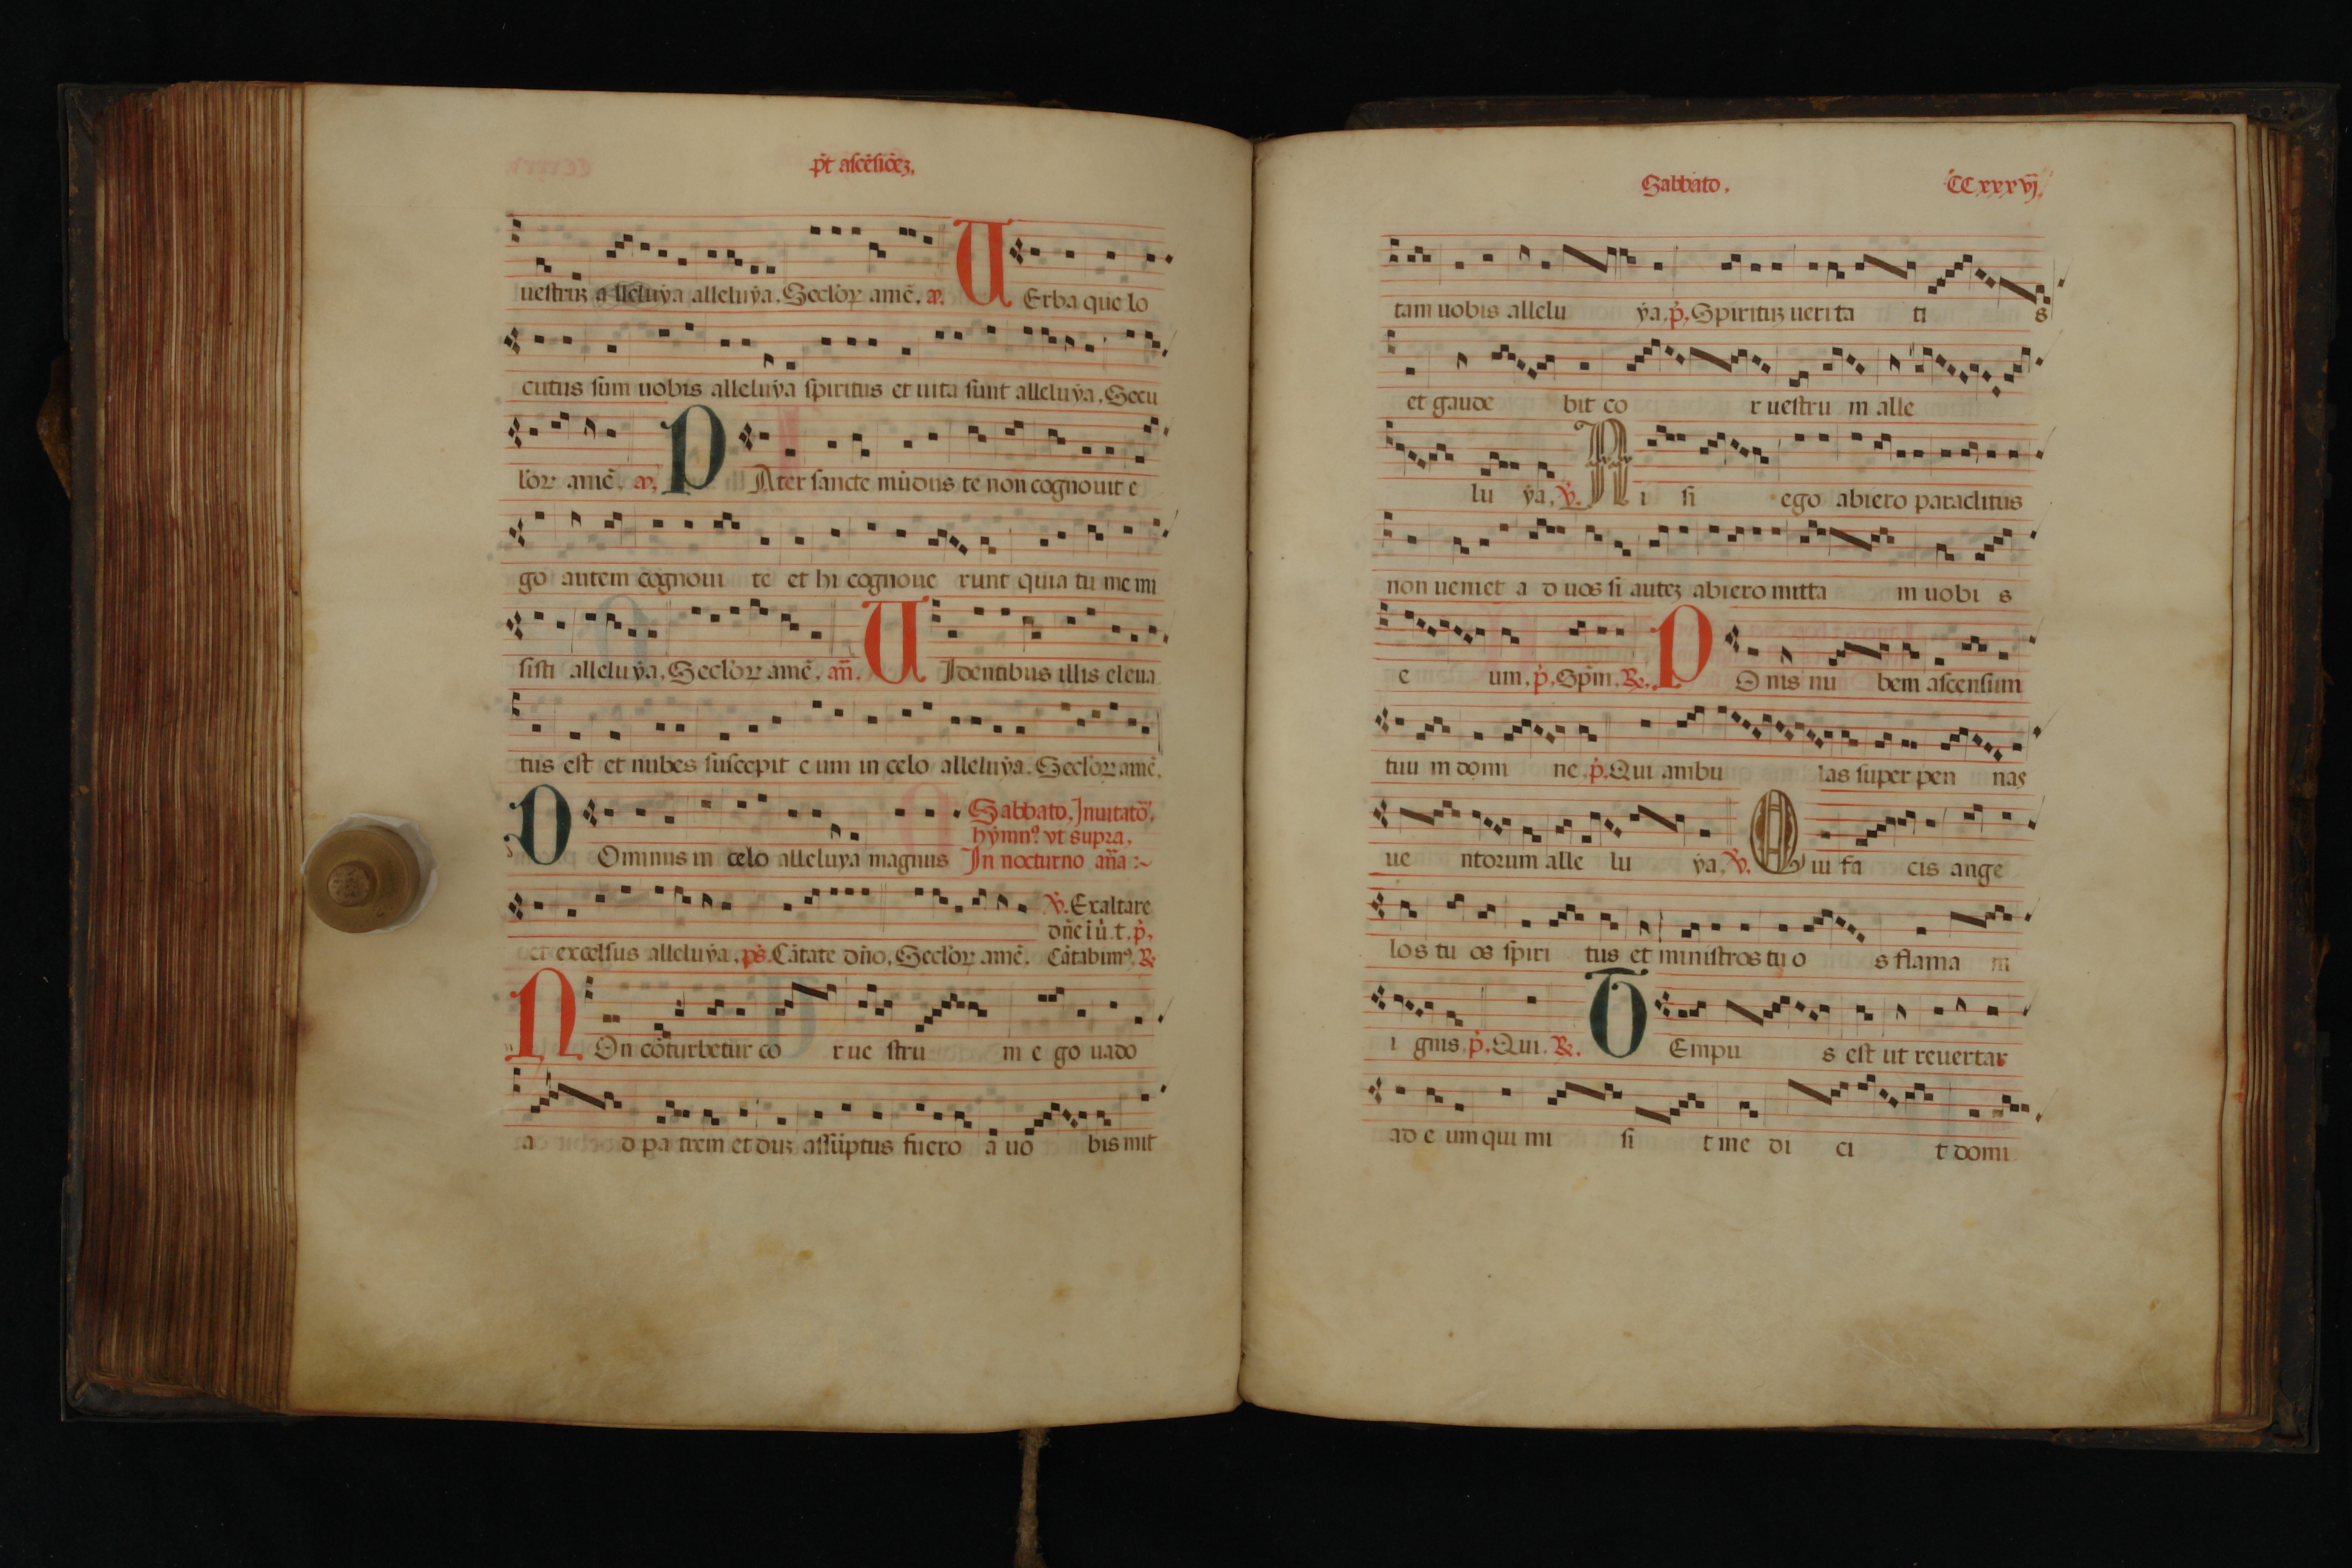 p̃t ascẽsiõeʒ.
uestruʒ alleluÿa alleluÿa. Seclor̃ amẽ. a. VErba que lo
cutus sum uobis alleluÿa spiritus et uita sunt alleluÿa. Secu
lor amẽ. a. PAter sancte mũdus te non cognouit e
go autem cognoui te et hi cognoue runt quia tu me mi
sisti alleluÿa. Seclor̃ amẽ. añ. VIdentibus illis eleua
tus est et nubes suscepit eum in celo alleluÿa. Seclor̃ amẽ.
Sabbato. Inuitatõ.
hÿmnꝰ vt supra.
DOminus in celo alleluya magnus In nocturno aña :~
℣. Exaltare
dñe i ũ. t. p̃.
et excelsus alleluÿa. ps̃. Cãtate dño. Seclor̃ amẽ. Cãtabimꝰ. ℟
NOn cõturbetur co r ue stru m e go uado
a d pa trem et duʒ assũptus fuero a uo bis mit
Sabbato. CCxxxvj.
tam uobis allelu ÿa. p̃. Spirituʒ ueri ta ti s
et gaude bit co r uestru m alle
lu ÿa. ℣. NI si ego abiero paraclitus
non ueniet a d uos si auteʒ abiero mitta m uobi s
e um. p̃. Sp̃m. ℟. POnis nu bem ascensum
tuu m domi ne. p̃. Qui ambu las super pen nas
ue ntorum alle lu ÿa. ℣. Qui fa cis ange
los tu os spiri tus et ministros tu o s flama m
i gnis. p̃. Qui. ℟. TEmpu s est ut reuertar
ad e um qui mi si t me di ci t domi